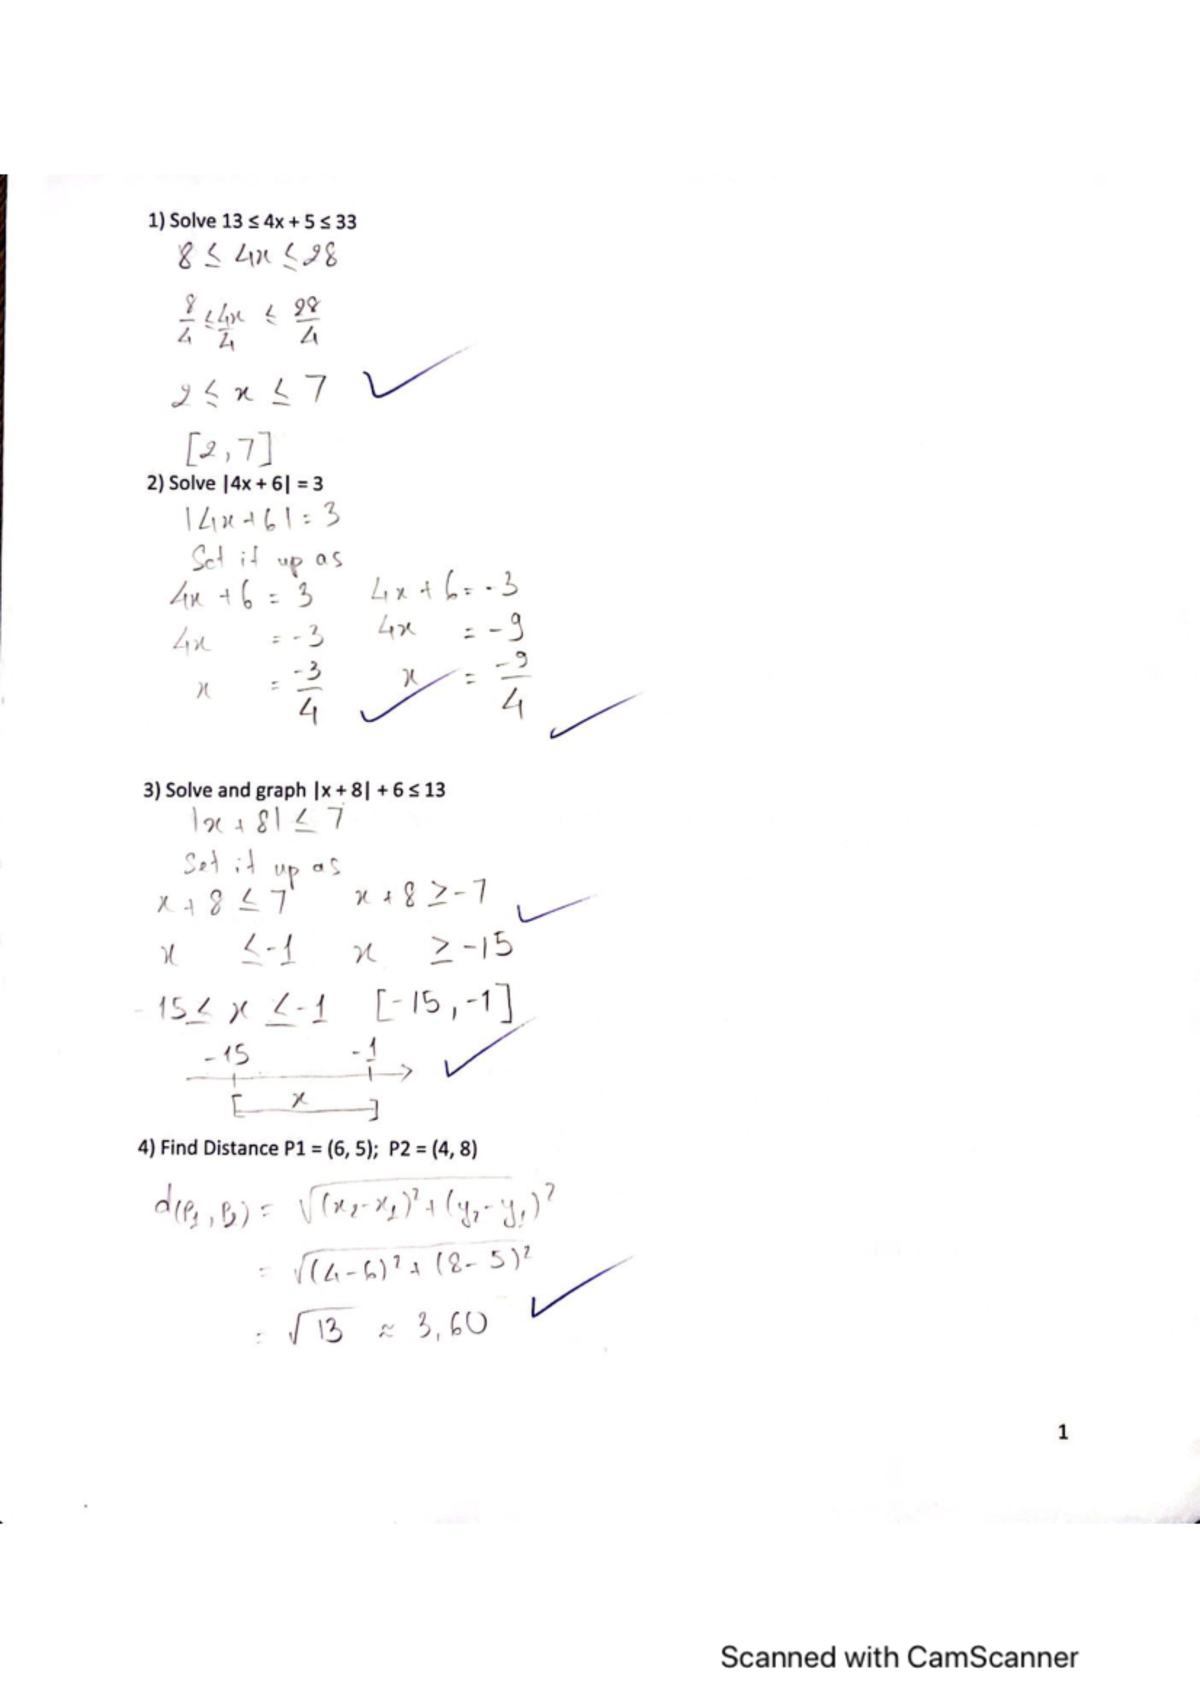 1) Solve 13 ≤ 4x + 5 ≤ 33
8 ≤ 4x ≤ 28
8/4 ≤ 4x/4 ≤ 28/4
2 ≤ x ≤ 7
[2, 7]
2) Solve |4x + 6| = 3
|4x + 6| = 3
Set it up as
4x + 6 = 3 4x + 6 = -3
4x = -3 4x = -9
x = -3/4 x = -9/4
3) Solve and graph |x + 8| + 6 ≤ 13
|x + 8| ≤ 7
Set it up as
x + 8 ≤ 7 x + 8 ≥ -7
x ≤ -1 x ≥ -15
-15 ≤ x ≤ -1 [-15, -1]
-15 -1
[ x ]
4) Find Distance P1 = (6, 5); P2 = (4, 8)
d(P1, P2) = √(x2 - x1)² + (y2 - y1)²
= √(4 - 6)² + (8 - 5)²
= √13 ≈ 3,60
1
Scanned with CamScanner